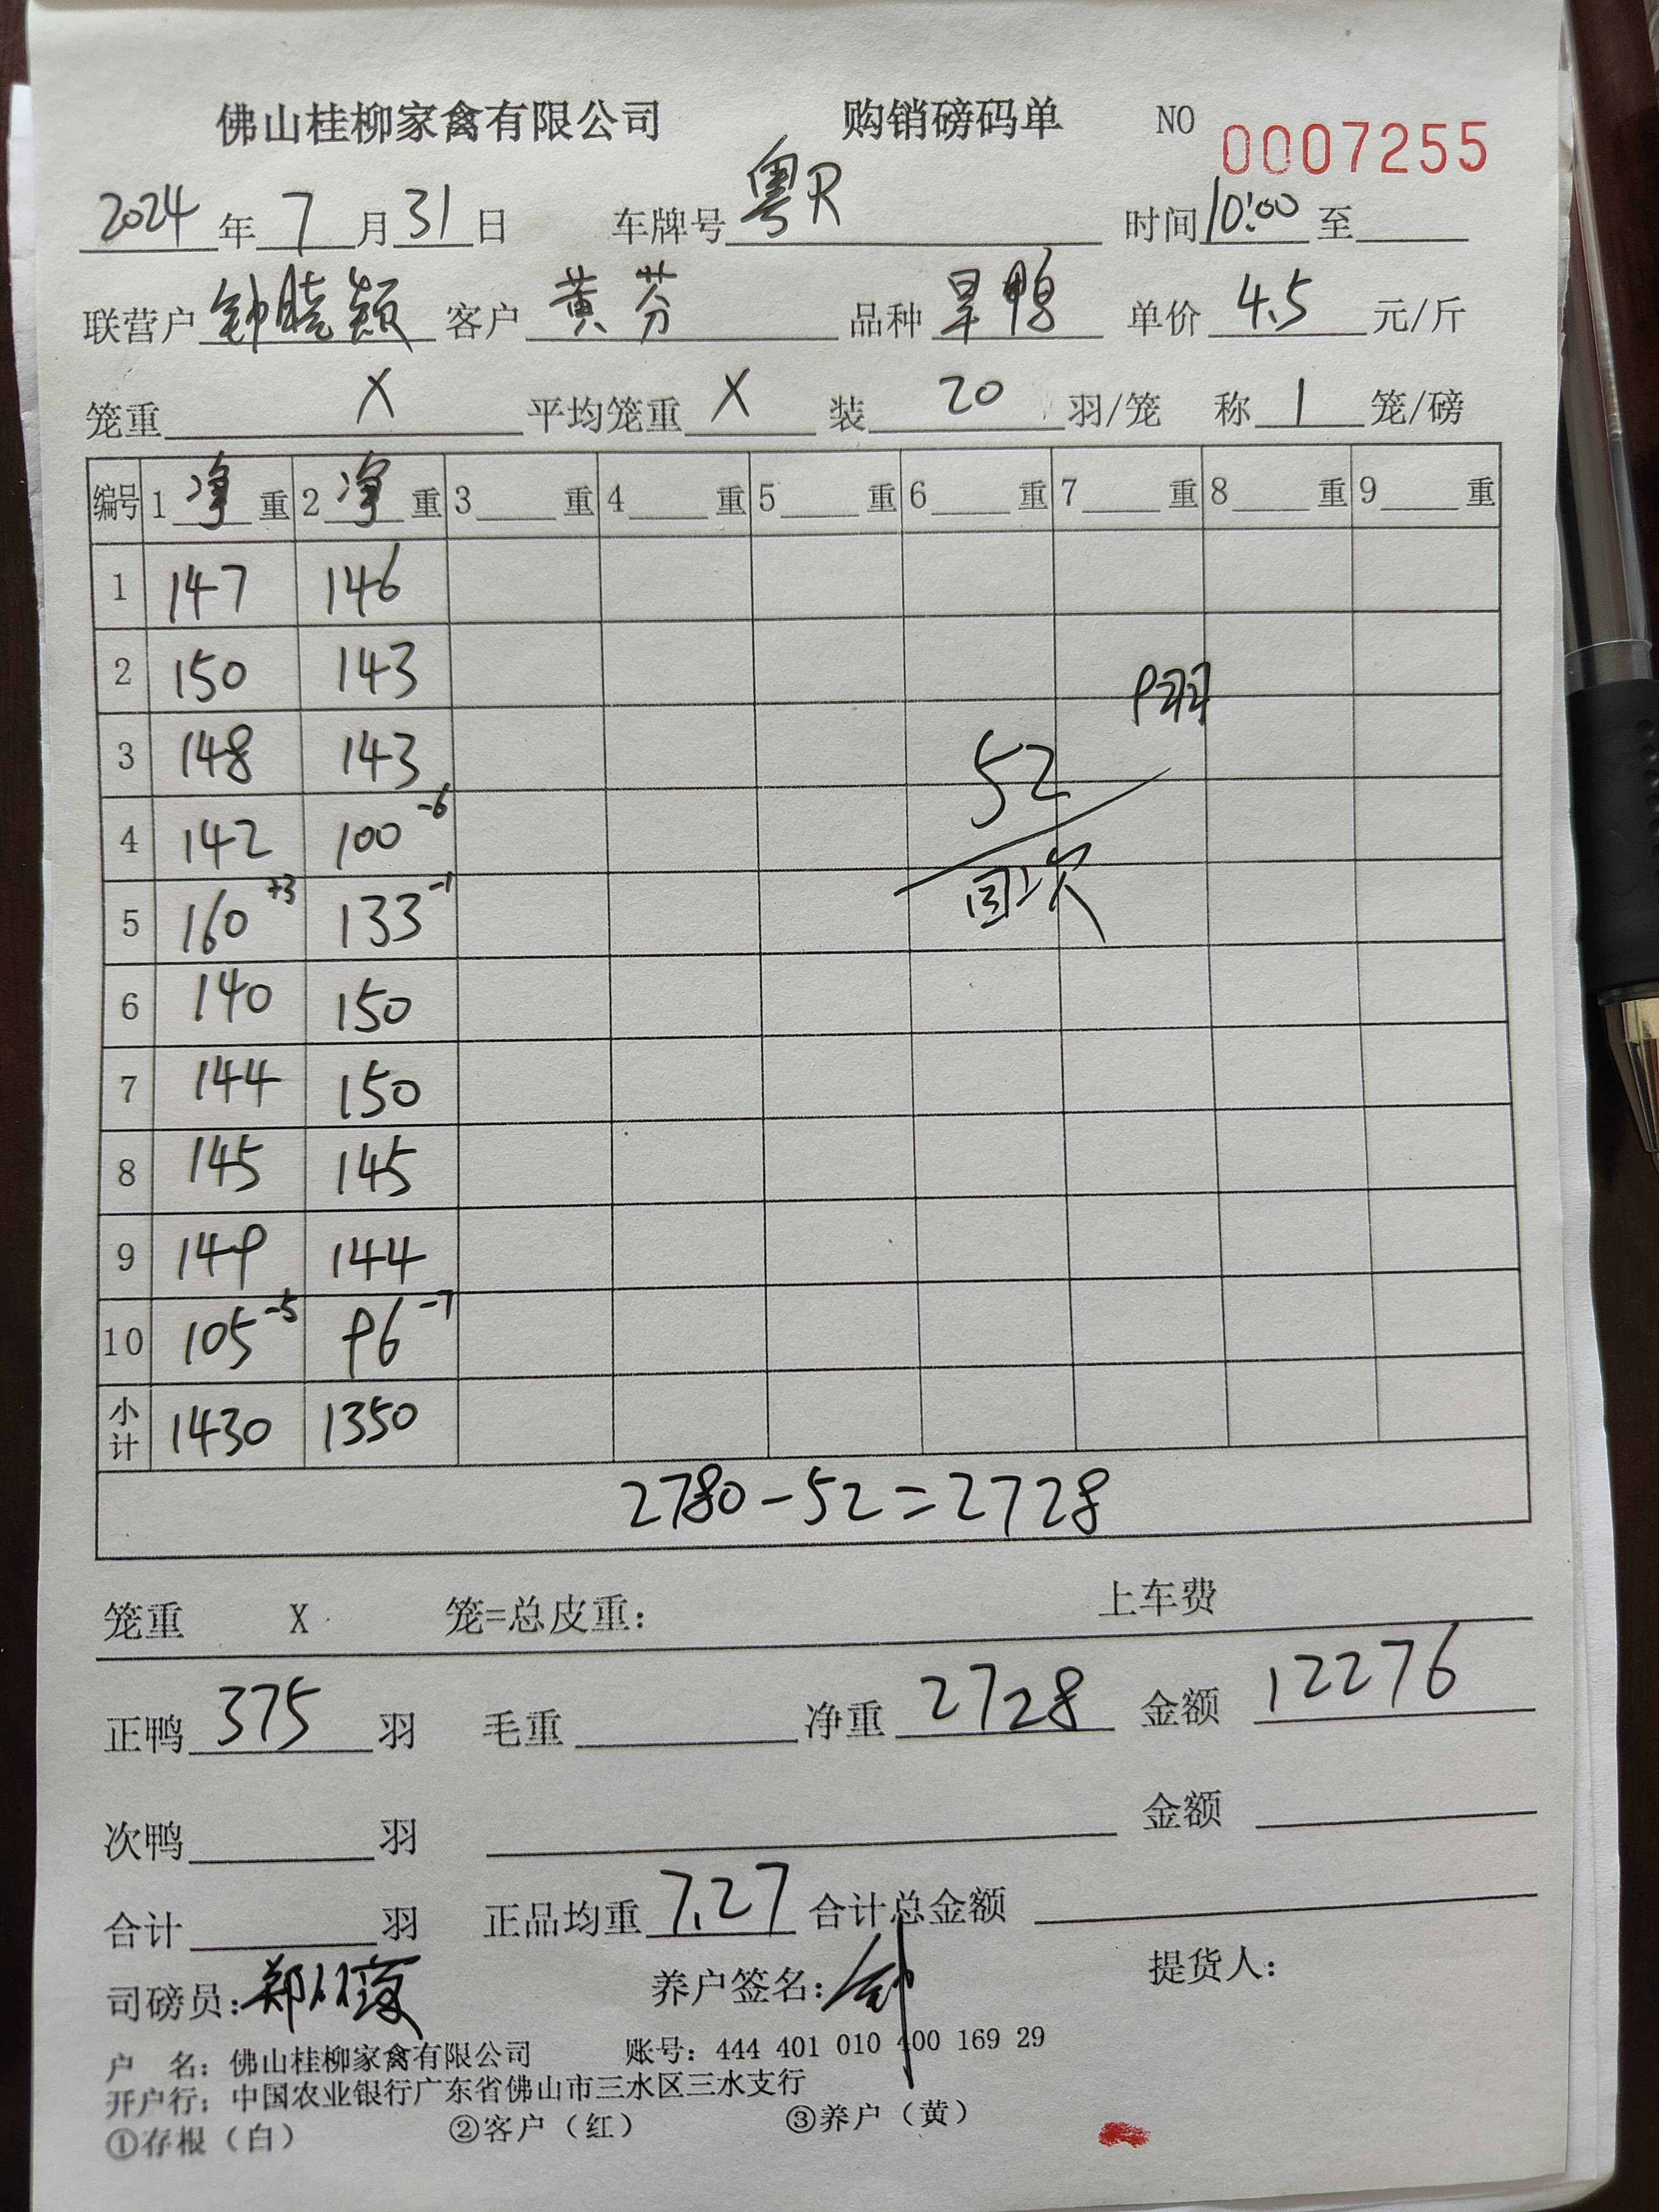 佛山桂柳家禽有限公司 购销磅码单 NO 0007255
2024年7月31日 车牌号 粤R 时间 10:00 至
联营户 钟晓颖 客户 黄芬 品种 旱鸭 单价 4.5 元/斤
笼重 X 平均笼重 X 装 20 羽/笼 称 1 笼/磅
编号 1 净 重 2 净 重 3 重 4 重 5 重 6 重 7 重 8 重 9 重
1 147 146
2 150 143
9羽
3 148 143
52
4 142 100 -6
回次
5 160 +3 133 -1
6 140 150
7 144 150
8 145 145
9 149 144
10 105 -5 96 -7
小计 1430 1350
2780-52=2728
笼重 X 笼=总皮重: 上车费
正鸭 375 羽 毛重 净重 2728 金额 12276
次鸭 羽 金额
合计 羽 正品均重 7.27 合计总金额
司磅员: 养户签名: 钟 提货人:
户 名: 佛山桂柳家禽有限公司 账号: 444 401 010 400 169 29
开户行: 中国农业银行广东省佛山市三水区三水支行
①存根（白） ②客户（红） ③养户（黄）